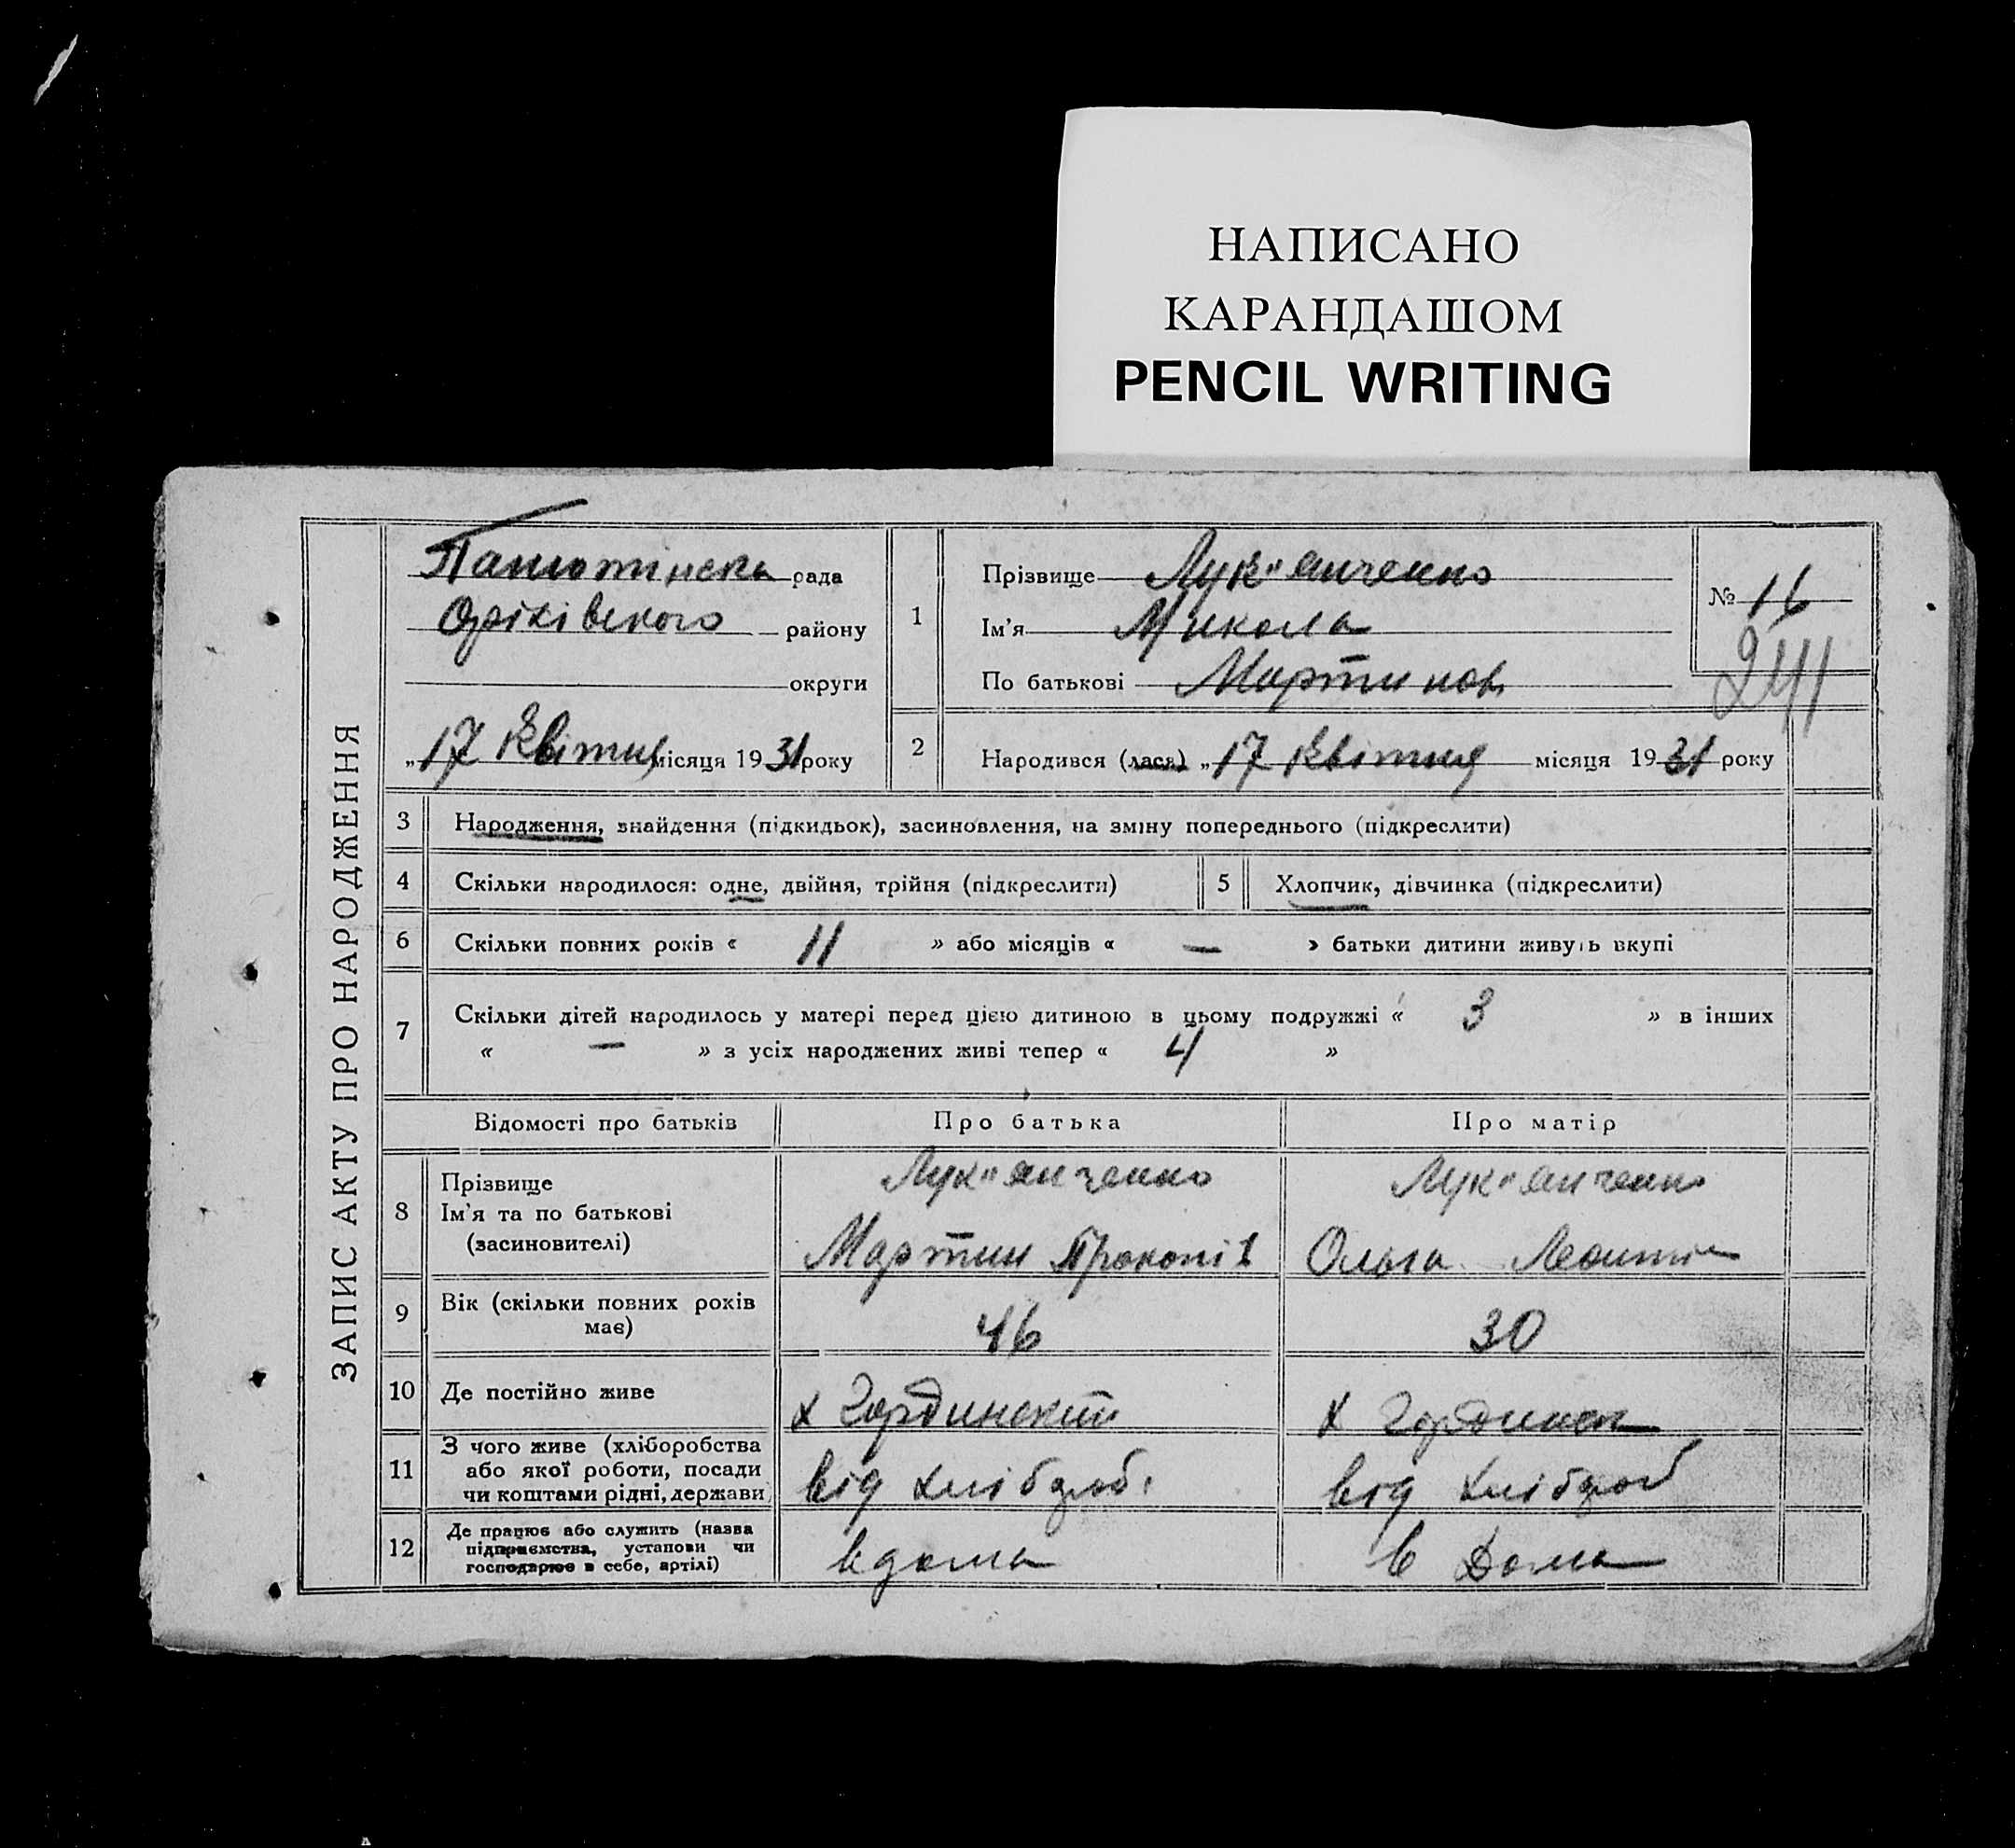 НАПИСАНО
КАРАНДАШОМ
PENCIL WRITING
ЗАПИС АКТУ ПРО НАРОДЖЕННЯ
Панютинська рада
Оріхівського району
округи
„17 Квітня місяця 1931 року
1
Прізвище Лук"янченко
Ім'я Микола
По батькові Мартинов
№ 16
241
2 Народився (лася) „17 Квітня місяця 1931 року
3 Народження, знайдення (підкидьок), засиновлення, на зміну попереднього (підкреслити)
4 Скільки народилося: одне, двійня, трійня (підкреслити) 5 Хлопчик, дівчинка (підкреслити)
6 Скільки повних років « 11 » або місяців « — » батьки дитини живуть вкупі
7 Скільки дітей народилось у матері перед цією дитиною в цьому подружжі « 3 » в інших
« — » з усіх народжених живі тепер « 4 »
Відомості про батьків Про батька Про матір
8 Прізвище
Ім'я та по батькові
(засиновителі)
Лук"янченко
Мартин Прокопів
Лук"янченко
Ольга Леонтів
9 Вік (скільки повних років
має)
46 30
10 Де постійно живе х Гординский х Гординск
11 З чого живе (хліборобства
або якої роботи, посади
чи коштами рідні, держави)
від хлібороб. від хлібороб
12 Де працює або служить (назва
підприємства, установи чи
господарює в себе, артілі)
вдома в дома